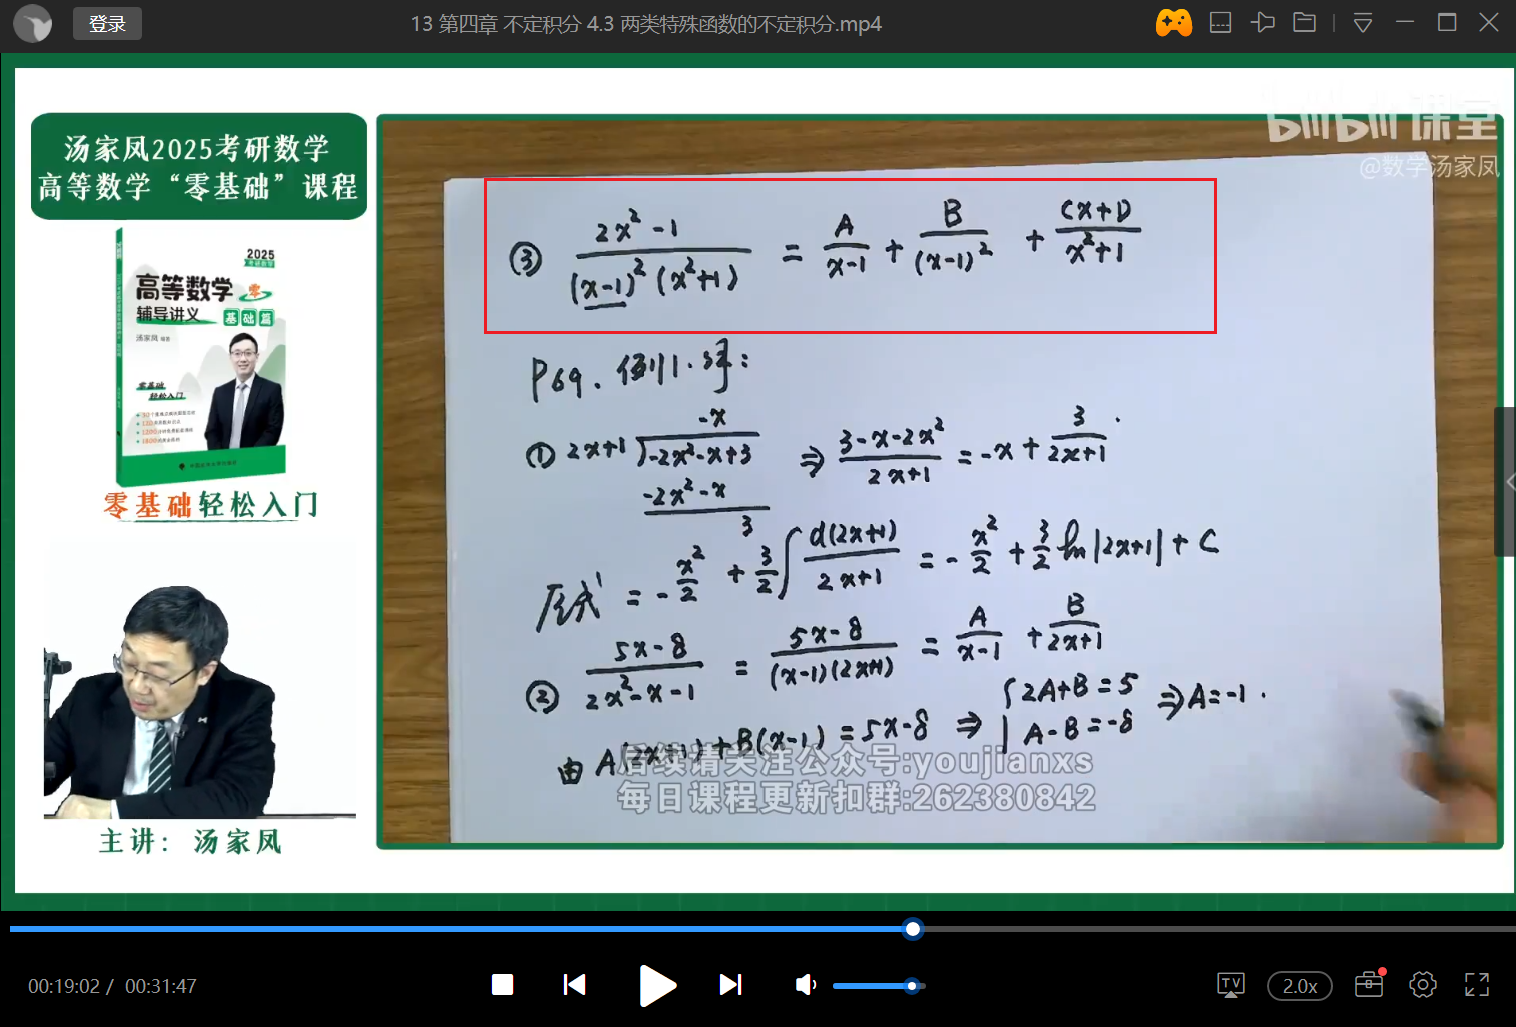 登录
13 第四章 不定积分 4.3 两类特殊函数的不定积分.mp4
汤家凤2025考研数学
高等数学“零基础”课程
2025
高等数学 零
辅导讲义 基础篇
汤家凤
零基础
轻松入门
零基础轻松入门
主讲：汤家凤
bilibili课堂
@数学汤家凤
③ (2x²-1)/((x-1)²(x²+1)) = A/(x-1) + B/(x-1)² + (Cx+D)/(x²+1)
P69. 例1. 解:
① 2x+1 ) -2x²-x+3
-x
-2x²-x
3
⇒ (3-x-2x²)/(2x+1) = -x + 3/(2x+1).
原式 = -x²/2 + 3/2 ∫ d(2x+1)/(2x+1) = -x²/2 + 3/2 ln|2x+1| + C
② (5x-8)/(2x²-x-1) = (5x-8)/((x-1)(2x+1)) = A/(x-1) + B/(2x+1)
由 A(2x+1)+B(x-1)=5x-8 ⇒ { 2A+B=5
A-B=-8
⇒ A=-1.
后续请关注公众号:youjianxs
每日课程更新扣群:262380842
00:19:02 / 00:31:47
TV
2.0x